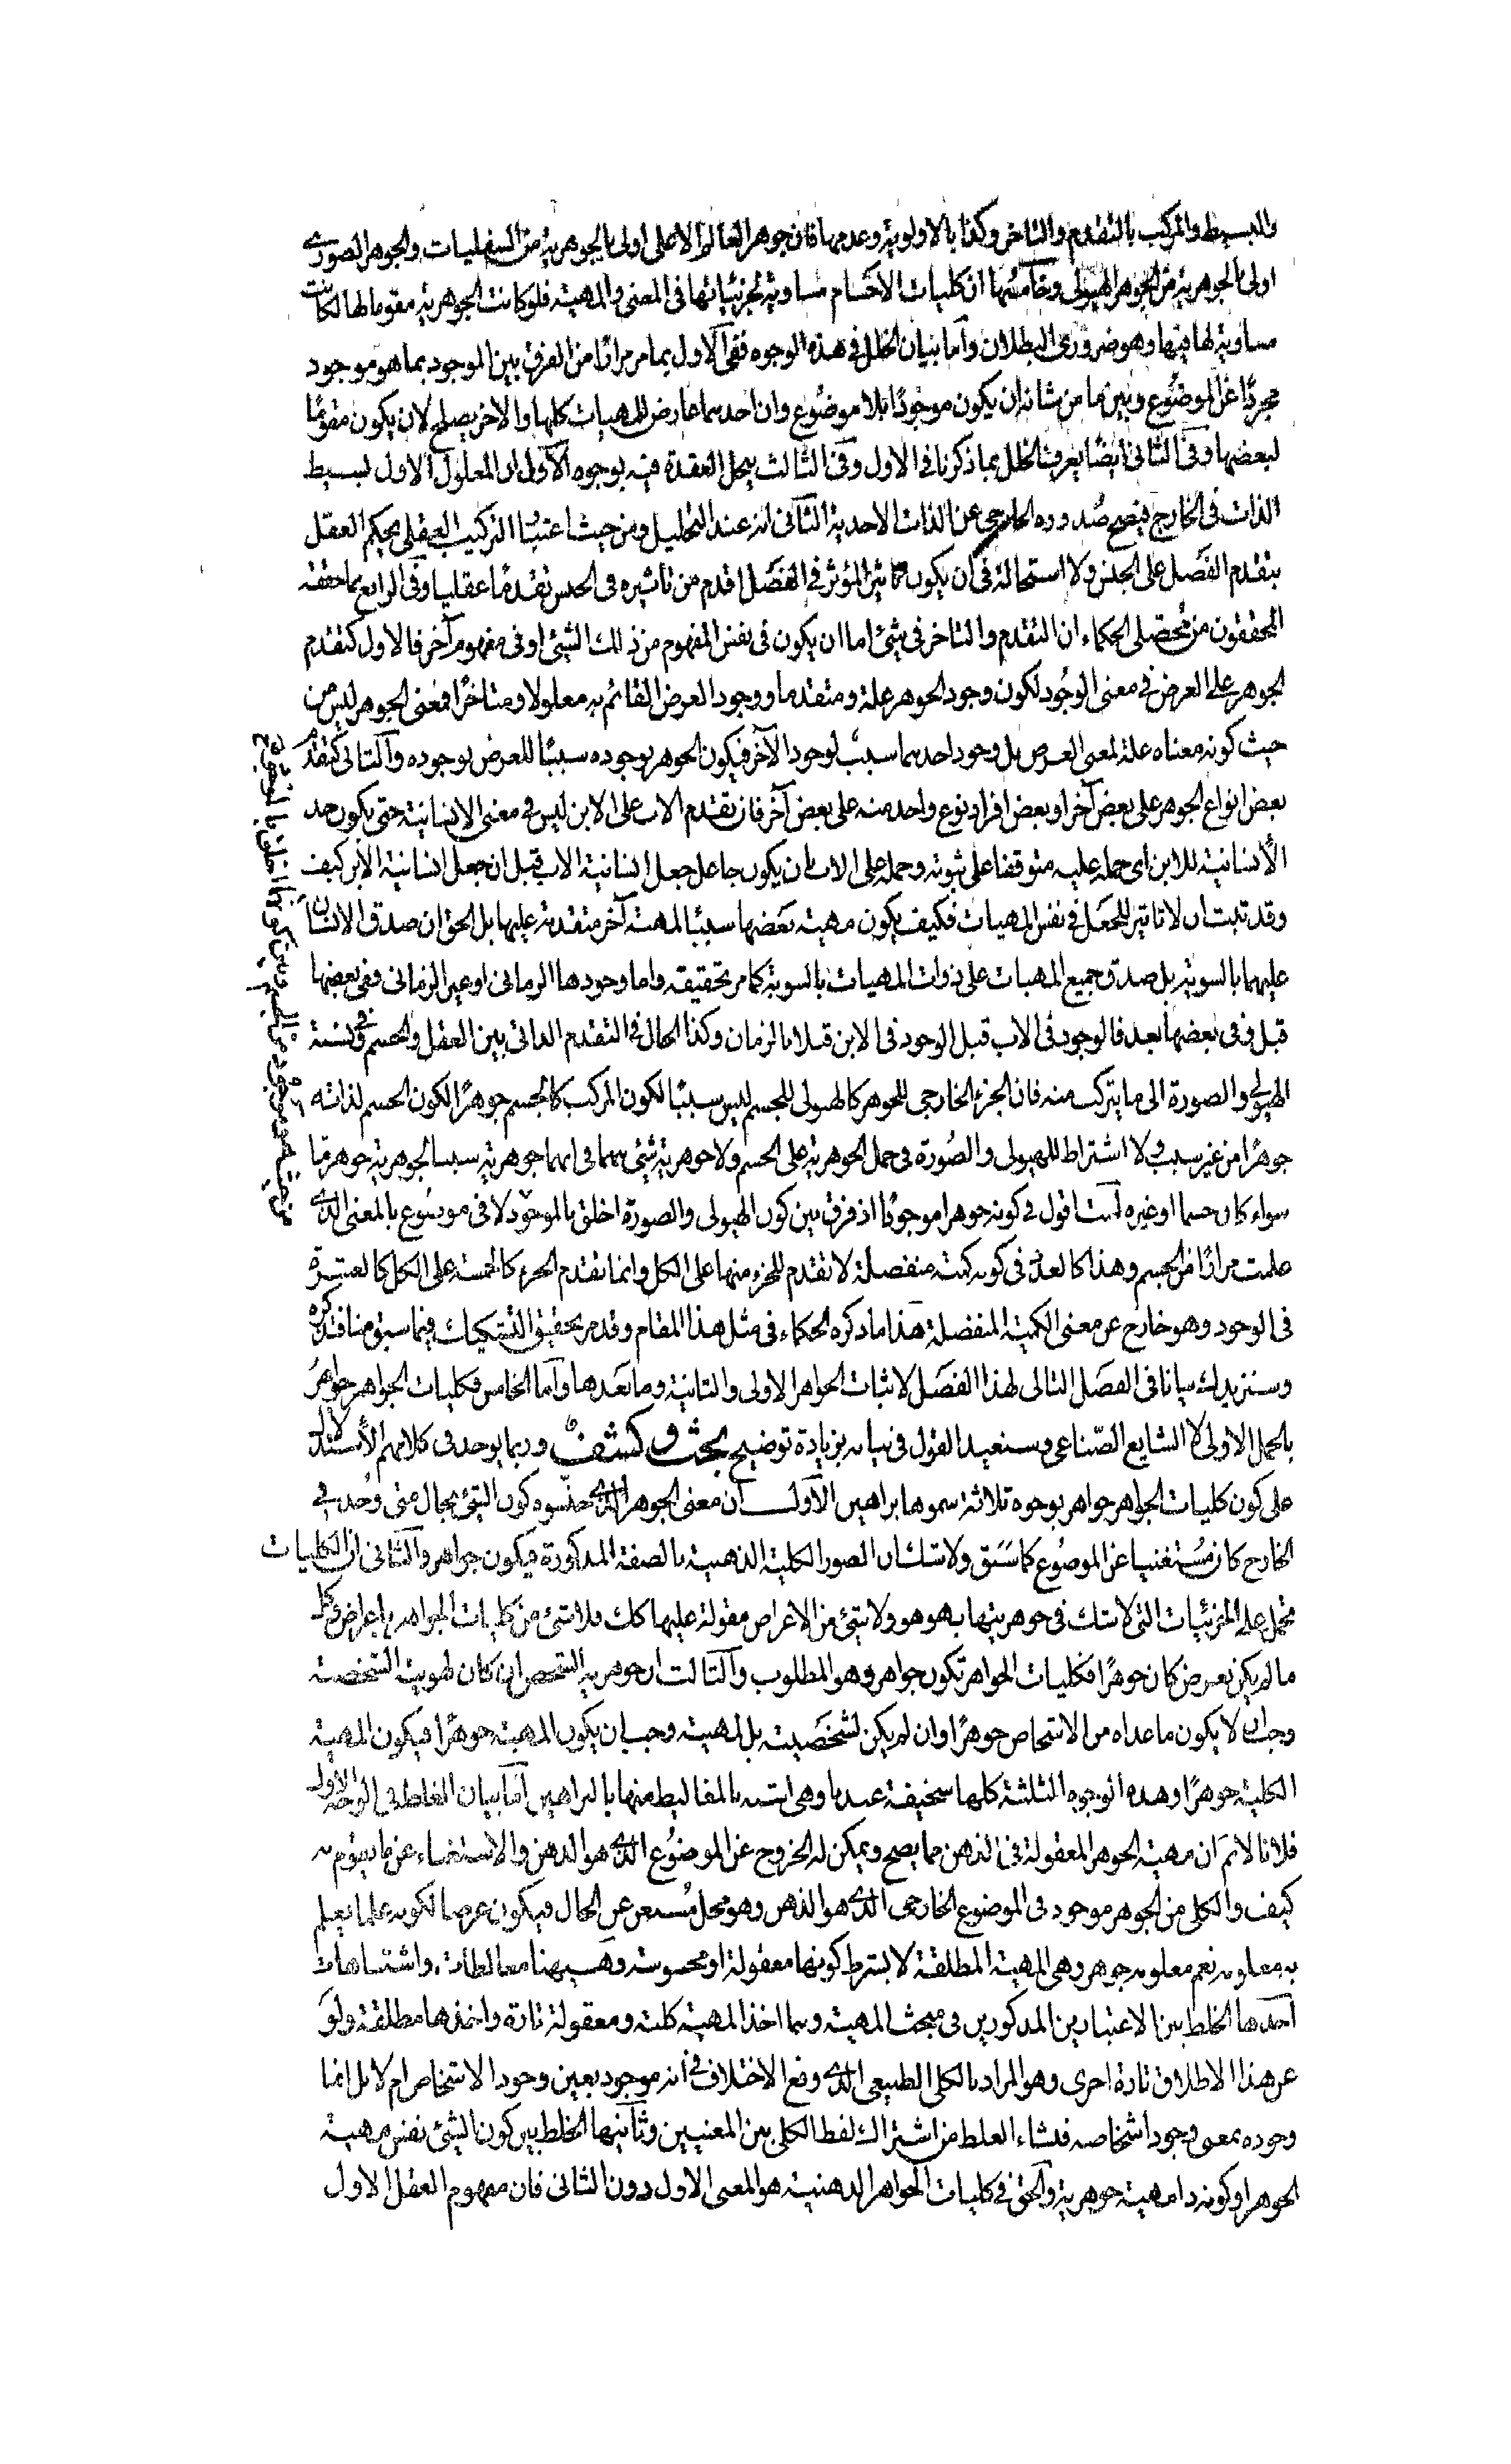 والبسيط والمركب بالتقدم والتاخر وكذا بالاولوية وعدمها فان جوهر العالم الاعلى اولى بالجوهرية من السفليات والجوهر الصورى
اولى بالجوهرية من الجوهر الهيولى وخامسها ان كليات الاجسام مساوية لجزئياتها فى المعنى والمهية فلو كانت الجوهرية مقوما لها لكانت
مساوية لها فيها وهو ضرورى البطلان واما بيان الخلل فى هذه الوجوه ففى الاول بما مر مرارًا من الفرق بين الموجود بما هو موجود
مجردًا عن الموضوع وبين ما من شانه ان يكون موجودًا بلا موضوع وان احدهما عارض للمهيات كلها والاخر يصلح لان يكون مقومًا
لبعضها وفى الثانى ايضًا يعرف الخلل بما ذكرنا فى الاول وفى الثالث ينحل العقدة فيه بوجوه الاول ان المعلول الاول بسيط
الذات فى الخارج فيصح صدوره الخارجى عن الذات الاحدية الثانى انه عند التحليل ومن حيث اعتبار التركيب العقلى يحكم العقل
بتقدم الفصل على الجنس ولا استحالة فى ان يكون تاثير المؤثر فى الفصل اقدم من تاثيره فى الجنس تقدمًا عقليا وفى الرابع بما حققه
المحققون من محصلى الحكماء ان التقدم والتاخر فى شئ اما ان يكون فى نفس المفهوم من ذلك الشئ او فى مفهوم آخر فالاول كتقدم
الجوهر على العرض فى معنى الوجود لكون وجود الجوهر علة ومتقدما ووجود العرض القائم به معلولا ومتاخرًا فمعنى الجوهر ليس من
حيث كونه معناه علة لمعنى العرض بل وجود احدهما سبب لوجود الآخر فيكون الجوهر بوجوده سببًا للعرض بوجوده والثانى كتقدم
بعض انواع الجوهر على بعض آخر او بعض افراد نوع واحد منه على بعض آخر فان تقدم الاب على الابن ليس فى معنى الانسانية حتى يكون حد
الأنسانية للابن اى حمله عليه متوقفا على ثبوته وحمله على الاب بان يكون جاعل جعل انسانية الاب قبل ان جعل انسانية الابن كيف
وقد ثبت ان لا تاثير للجعل فى نفس المهيات فكيف يكون مهية بعضها سببًا لمهية آخر متقدمة عليها بل الحق ان صدق الانسان
عليهما بالسوية بل صدق جميع المهيات على ذوات المهيات بالسوية كما مر تحقيقه واما وجودها الزمانى او غير الزمانى ففى بعضها
قبل وفى بعضها بعد فالوجود فى الاب قبل الوجود فى الابن قبلا بالزمان وكذا الحال فى التقدم الذاتى بين العقل والجسم وفى نسبة
الهيولى والصورة الى ما يتركب منه فان الجزء الخارجى للجوهر كالهيولى للجسم ليس سببًا لكون المركب كالجسم جوهرًا لكون الجسم لذاته
جوهرًا من غير سبب ولا اشتراط للهيولى والصورة فى حمل الجوهرية على الجسم ولا جوهرية شئ منهما فى انهما جوهرية سببا لجوهرية جوهر ما
سواء كان جسما او غيره لست اقول فى كونه جوهرا موجودًا اذ فرق بين كون الهيولى والصورة اخلق بالموجود لا فى موضوع بالمعنى الذى
علمت مرارًا من الجسم وهذا كالعدد فى كونه كمية منفصلة لا تقدم للجزء منها على الكل وانما تقدم الجزء كالخمسة على الكل كالعشرة
فى الوجود وهو خارج عن معنى الكمية المنفصلة هذا ما ذكره الحكماء فى مثل هذا المقام وقد مر تحقيق التشكيك فيما سبق منا فتذكره
وسنزيدك بيانا فى الفصل التالى لهذا الفصل لاثبات الجواهر الاولى والثانية وما بعدها واما الخامس فكليات الجواهر جواهر
بالحمل الاولى لا الشايع الصناعى وسنعيد القول فى بيانه بزيادة توضيح بحث وكشف وربما يوجد فى كلامهم الأستدلال
على كون كليات الجواهر جواهر بوجوه ثلاثة سموها براهين الاول ان معنى الجوهر الذى جنسوه كون الشئ بحال متى وجد فى
الخارج كان مستغنيا عن الموضوع كما سبق ولا شك ان الصور الكلية الذهنية بالصفة المذكورة فيكون جواهر والثانى ان الكليات
تحمل على الجزئيات التى لا شك فى جوهريتها بهو هو ولا شئ من الاعراض مقولة عليها كك فلا شئ من كليات الجواهر باعراض وكل
ما لم يكن بعرض كان جوهرًا فكليات الجواهر تكون جواهر وهو المطلوب والثالث ان جوهرية الشخص ان كان لهويته الشخصية
وجب ان لا يكون ما عداه من الاشخاص جوهرًا وان لم يكن لشخصيته بل لمهيته وجب ان يكون المهية جوهرًا فيكون المهية
الكلية جوهرًا وهذه الوجوه الثلثة كلها سخيفة عندنا وهى اشبه بالمغاليط منها بالبراهين اما بيان الغلط فى الوجه الاول
فلانا لا نم ان مهية الجوهر المعقولة فى الذهن مما يصح ويمكن له الخروج عن الموضوع الذى هو الذهن والاستغناء عن ما يقوم به
كيف والكلى من الجوهر موجود فى الموضوع الخارجى الذى هو الذهن وهو محل مستغن عن الحال فيكون عرضا لكونه علما يعلم
به معلومه نعم معلومه جوهر وهى المهية المطلقة لا بشرط كونها معقولة او محسوسة وهيهنا مغالطات واشتباهات
احدها الخلط بين الاعتبارين المذكورين فى مبحث المهية وبما اخذ المهية كلية ومعقولة تارة واخذها مطلقة ولو
عن هذا الاطلاق تارة اخرى وهو المراد بالكلى الطبيعى الذى وقع الاختلاف فى انه موجود بعين وجود الاشخاص ام لا بل انما
وجوده بمعنى وجود اشخاصه فمنشاء الغلط من اشتراك لفظ الكلى بين المعنيين وثانيها الخلط بين كون الشئ نفس مهية
الجوهر او كونه ذا مهية جوهرية والحق فى كليات الجواهر الذهنية هو المعنى الاول دون الثانى فان مفهوم العقل الاول
من حيث هو موجود من الجسم وبين كونهما اخلق بالموضوع